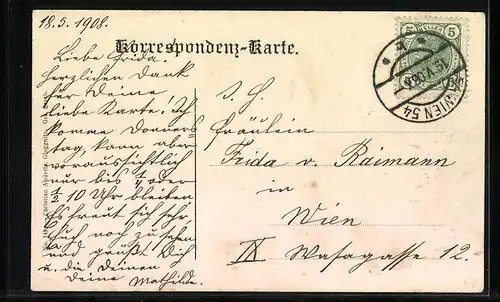 18.5.1908.
Liebe Frida.
Herzlichen Dank
für Deine
liebe Karte! Ich
komme Donners
tag, kann aber
voraussichtlich
nur bis ¼ oder
½ 10 Uhr bleiben
Es freut sich sehr
Euch noch zu sehen
und grüßt Dich
u. die Deinen
Deine Mathilde.
Korrespondenz-Karte.
5 5
WIEN 54
S. H.
Fräulein
Frida v. Raimann
in
Wien
IX Wasagasse 12.
Christian